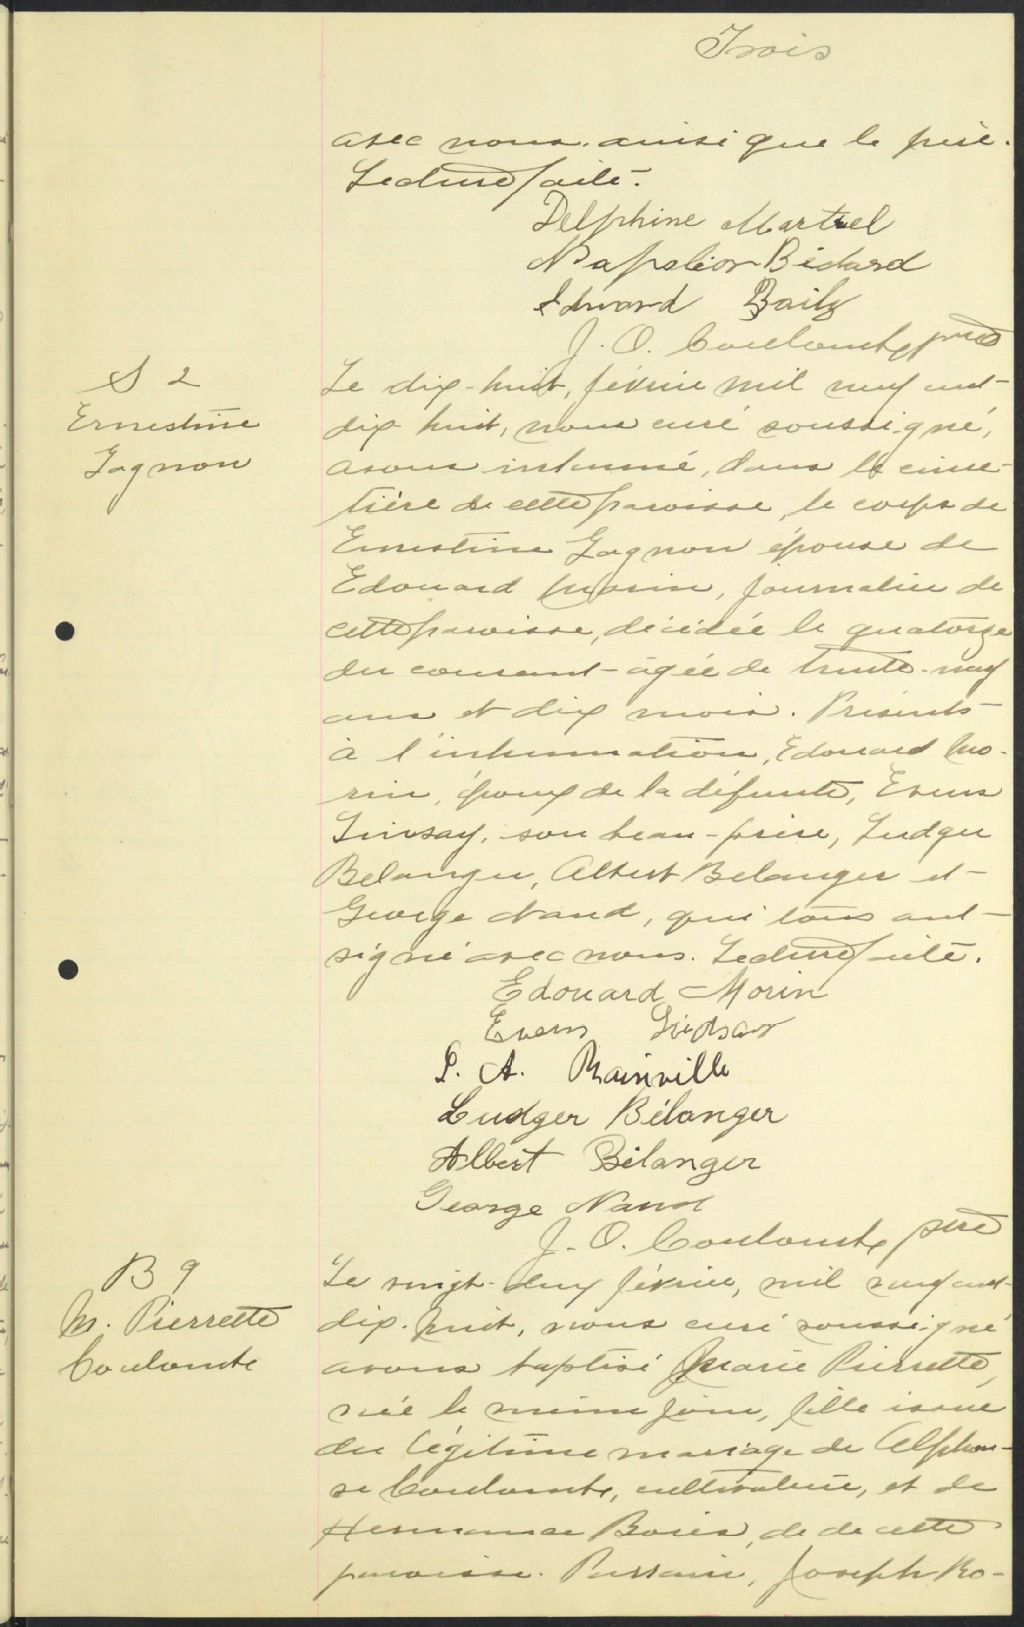 Trois
avec nous ainsi que le père.
Lecture faite.
Delphine Martel
Napoléon Bédard
Edward Baily
J. O. Coulombe ptre
S 2
Ernestine
Gagnon
Le dix-huit, février mil neuf cent
dix huit, nous curé soussigné,
avons inhumé, dans le cime-
tière de cette paroisse, le corps de
Ernestine Gagnon épouse de
Edouard Morin, journalier de
cette paroisse, décédée le quatorze
du courant âgée de trente-neuf
ans et dix mois. Présents
à l'inhumation, Edouard Mo-
rin, époux de la défunte, Evens
Linsay, son beau-père, Ludger
Belanger, Albert Belanger et
George Naud, qui tous ont
signé avec nous. Lecture faite.
Edouard Morin
Evens
P. A. Rainville
Ludger Bélanger
Albert Bélanger
George Naud
J. O. Coulombe ptre
B 9
M. Pierrette
Coulombe
Le vingt-deux février, mil neuf cent
dix-huit, nous curé soussigné
avons baptisé Marie Pierrette,
née le même jour, fille issue
du légitime mariage de Alphon-
se Coulombe, cultivateur, et de
Hermance Boies, de de cette
paroisse. Parrain, Joseph Ro-